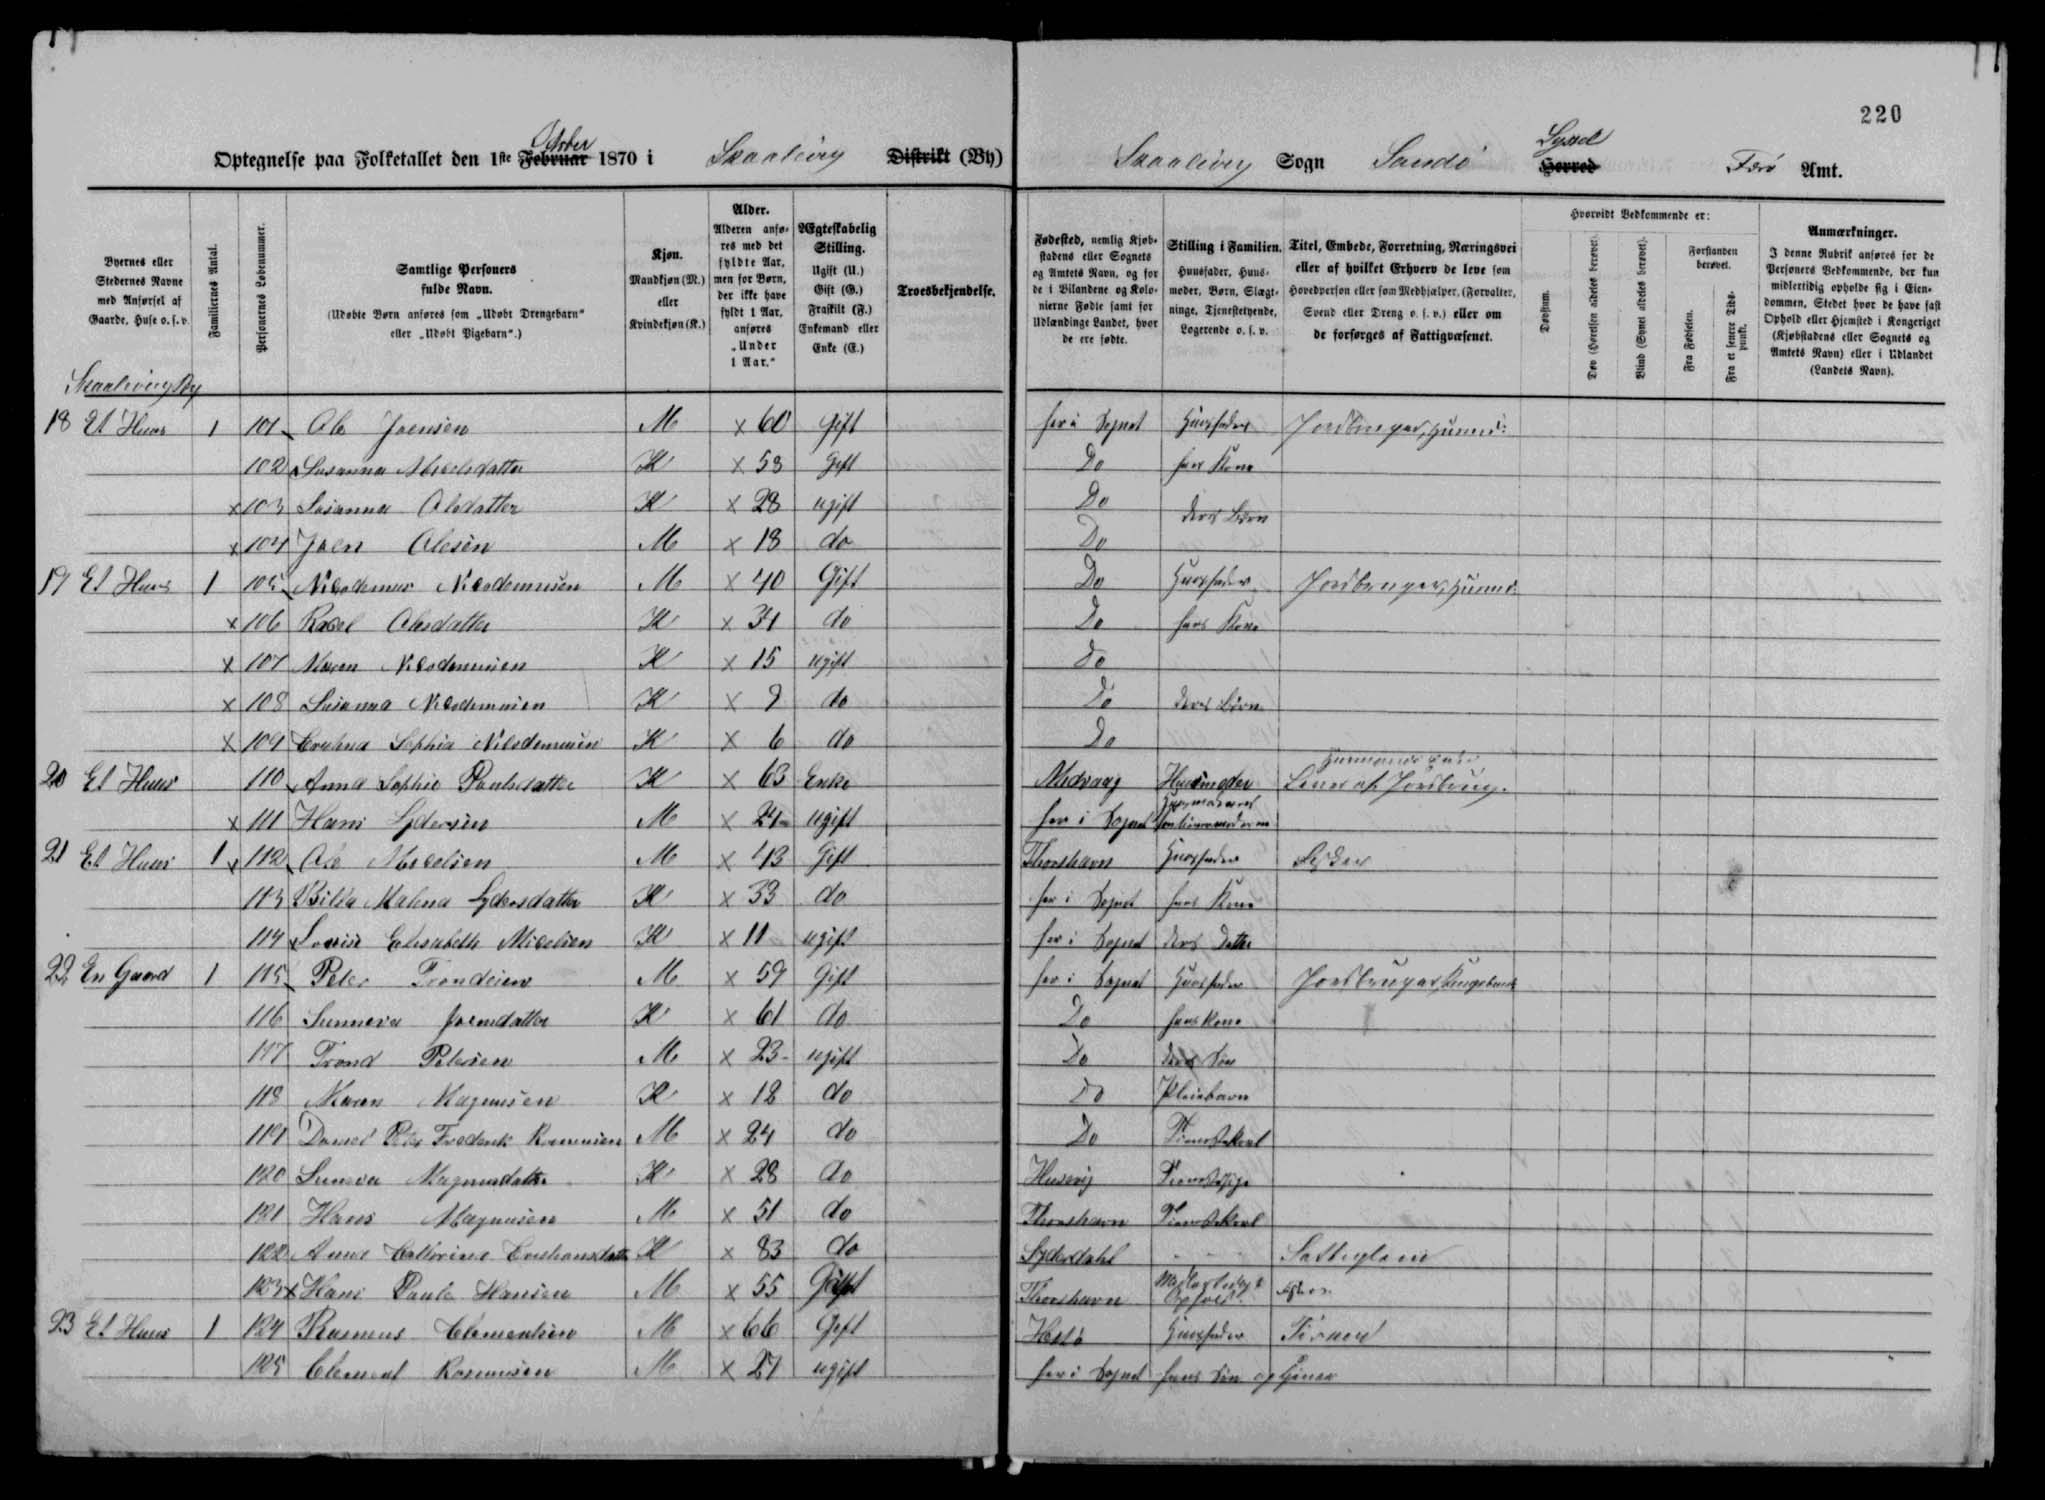 220
Optegnelse paa Folketallet den 1ste Februar October 1870 i Skaalevig Distrikt (By)
Skaalevig Sogn Sandø Herred Syssel Færø Amt.
Byernes eller Stedernes Navne med Anførsel af Gaarde, Huse o. s. v.
Familiernes Antal.
Personernes Løbenummer.
Samtlige Personers fulde Navn.
(Udøbte Børn anføres som „Udøbt Drengebarn" eller „Udøbt Pigebarn".)
Kjøn. Mandkjøn (M.) eller Kvindekjøn (K.)
Alder. Alderen anføres med det fyldte Aar, men for Børn, der ikke have fyldt 1 Aar, anføres „Under 1 Aar."
Ægteskabelig Stilling. Ugift (U.) Gift (G.) Fraskilt (F.) Enkemand eller Enke (E.)
Troesbekjendelse.
Fødested, nemlig Kjøbstadens eller Sognets og Amtets Navn, og for de i Bilandene og Kolonierne Fødte samt for Udlændinge Landet, hvor de ere fødte.
Stilling i Familien. Huusfader, Huusmoder, Børn, Slægtninge, Tjenestetyende, Logerende o. s. v.
Titel, Embede, Forretning, Næringsvei eller af hvilket Erhverv de leve som Hovedperson eller som Medhjælper, (Forvalter, Svend eller Dreng o. s. v.) eller om de forsørges af Fattigvæsenet.
Hvorvidt Vedkommende er:
Døvstum.
Døv (Hørelsen aldeles berøvet).
Blind (Synet aldeles berøvet).
Forstanden berøvet.
Fra Fødselen.
Fra et senere Tidspunkt.
Anmærkninger.
I denne Rubrik anføres for de Personers Vedkommende, der kun midlertidig opholde sig i Eiendommen, Stedet hvor de have fast Ophold eller Hjemsted i Kongeriget (Kjøbstadens eller Sognets og Amtets Navn) eller i Udlandet (Landets Navn).
Skaalevig By
18 Et Huus 1 101 Ole Joensen M x 60 Gift her i Sognet Huusfader Jordbruger, Huusm:
102 Susanna Michelsdatter K x 58 Gift Do hans Kone
x 103 Susanna Olesdatter K x 28 ugift Do
deres Børn
x 104 Joen Olesen M x 18 do Do
19 Et Huus 1 105 Nicodemus Nicodemusen M x 40 Gift Do Huusfader Jordbruger, Huusm:
x 106 Rachel Olesdatter K x 31 do Do hans Kone
x 107 Maren Nicodemusen K x 15 ugift Do
x 108 Susanna Nicodemusen K x 9 do Do deres Børn
x 109 Sophia Nicodemusen K x 6 do Do
20 Et Huus 110 Anna Sophie Poulsdatter K x 63 Enke Midvaag Huusmoder Lever af Jordbrug.
x 111 Hans Lydersen M x 24 ugift her i Sognet
21 Et Huus 1 x 112 Ole Michelsen M x 43 Gift Thorshavn Huusfader Fisker
113 Billa Malena Lydersdatter K x 33 do her i Sognet hans Kone
114 Lovise Elisabeth Michelsen K x 11 ugift her i Sognet deres Datter
22 En Gaard 1 115 Peter Trondesen M x 59 Gift her i Sognet Huusfader Jordbruger, Kongsbonde
116 Sunneva Joensdatter K x 61 do Do hans Kone
117 Trond Petersen M x 23 ugift Do deres Søn
118 Maren Magnusen K x 12 do Do Pleiebarn
119 Daniel Peter Frederik Rasmusen M x 24 do Do Tienestekarl
120 Sunneva Magnusdatter K x 28 do Husevig Tienestepige
121 Hans Magnusen M x 51 do Thorshavn Tienestekarl
122 Anna Cathrina Christiansdatter K x 83 do - - -
123 x Hans Paule Hansen M x 55 Gift Thorshavn Midlertidigt Ophold
23 Et Huus 1 124 Rasmus Clementsen M x 66 Gift Hestø Huusfader
125 Clement Rasmusen M x 27 ugift her i Sognet hans Søn